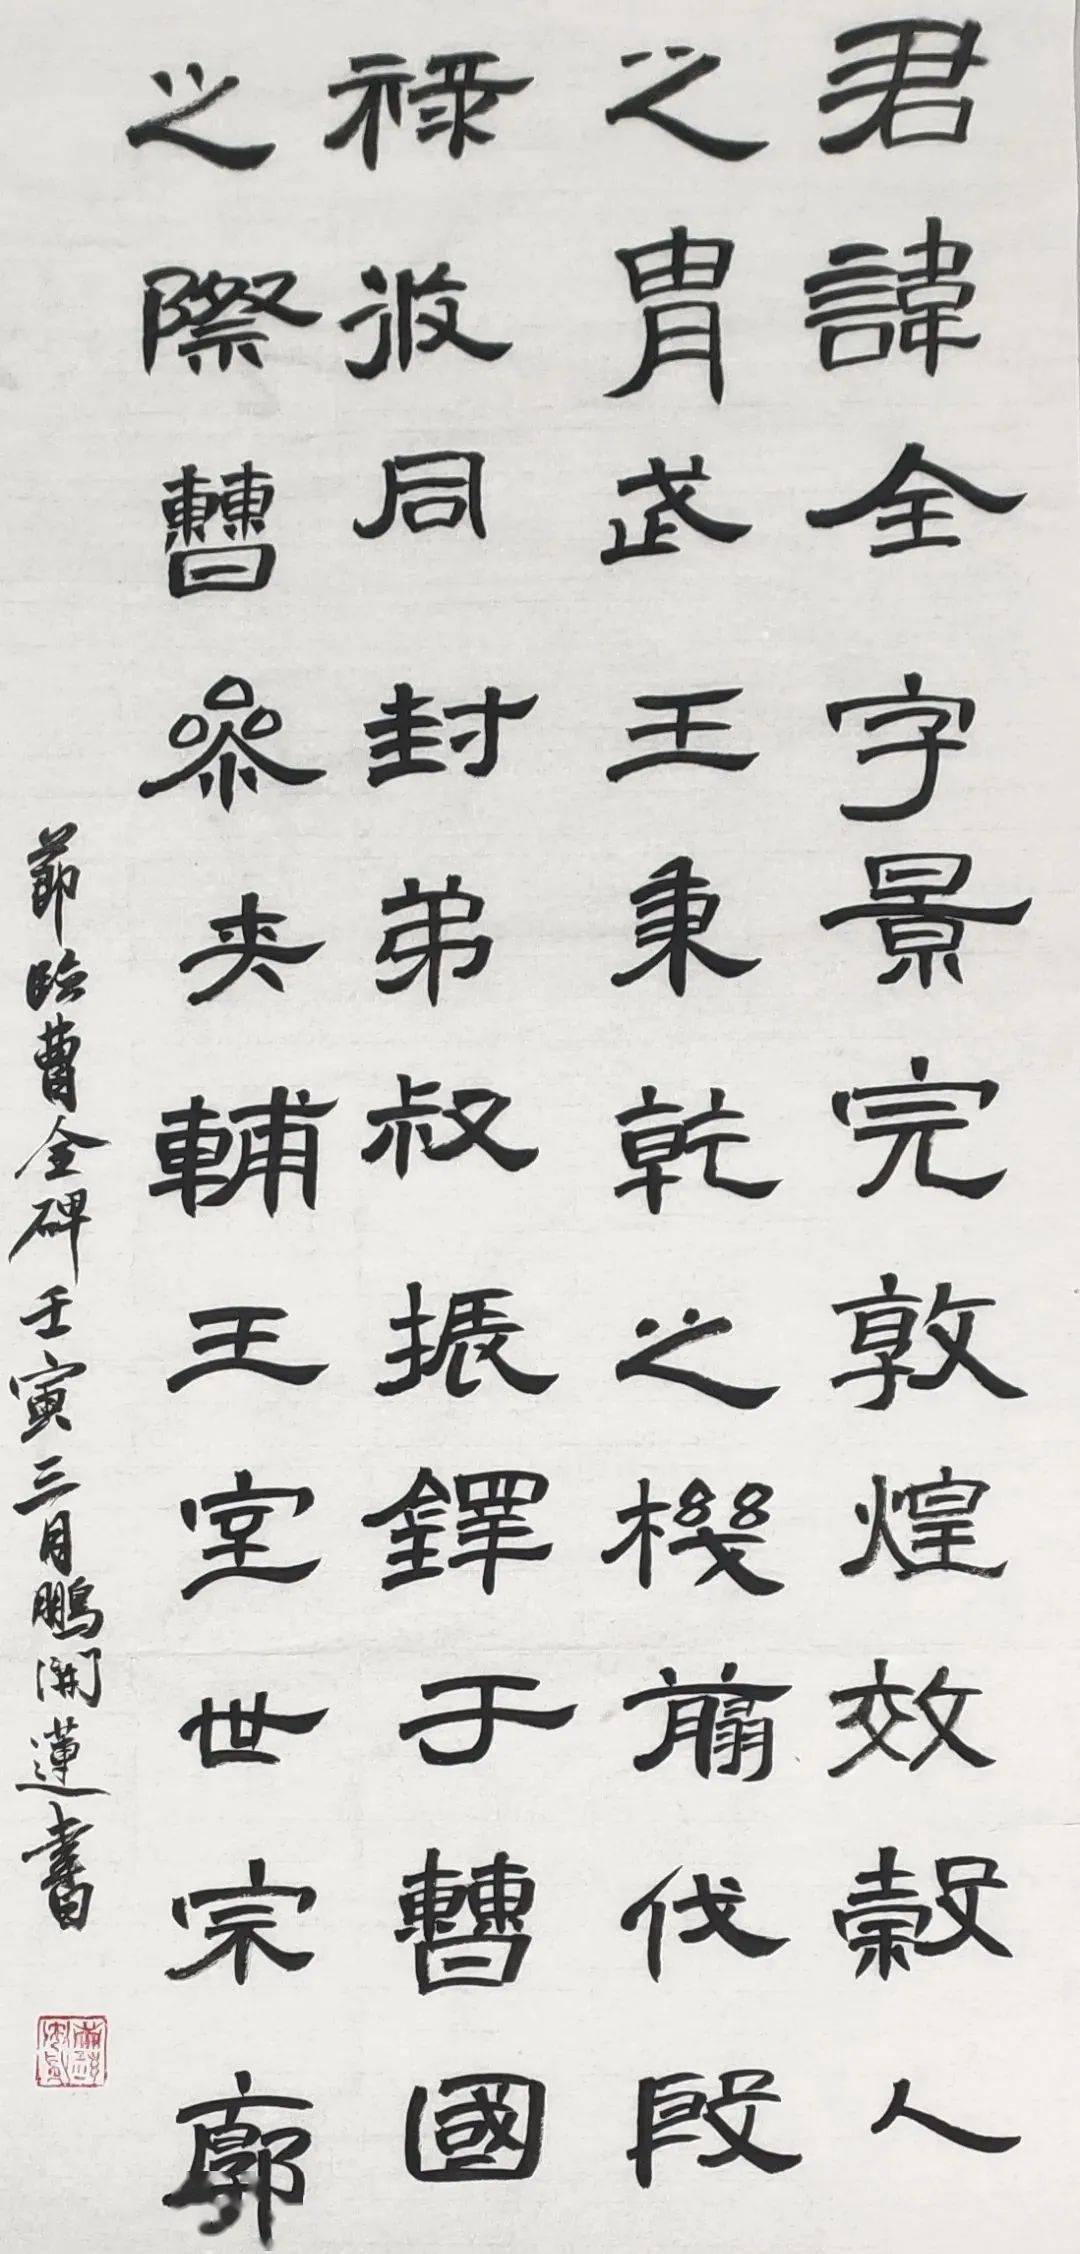 君諱全字景完敦煌效穀人
之胄武王秉乾之機翦伐殷
祿攸同封弟叔振鐸于曹國
之際曹參夾輔王室世宗廓
節臨曹全碑壬寅三月鵬開蓮書